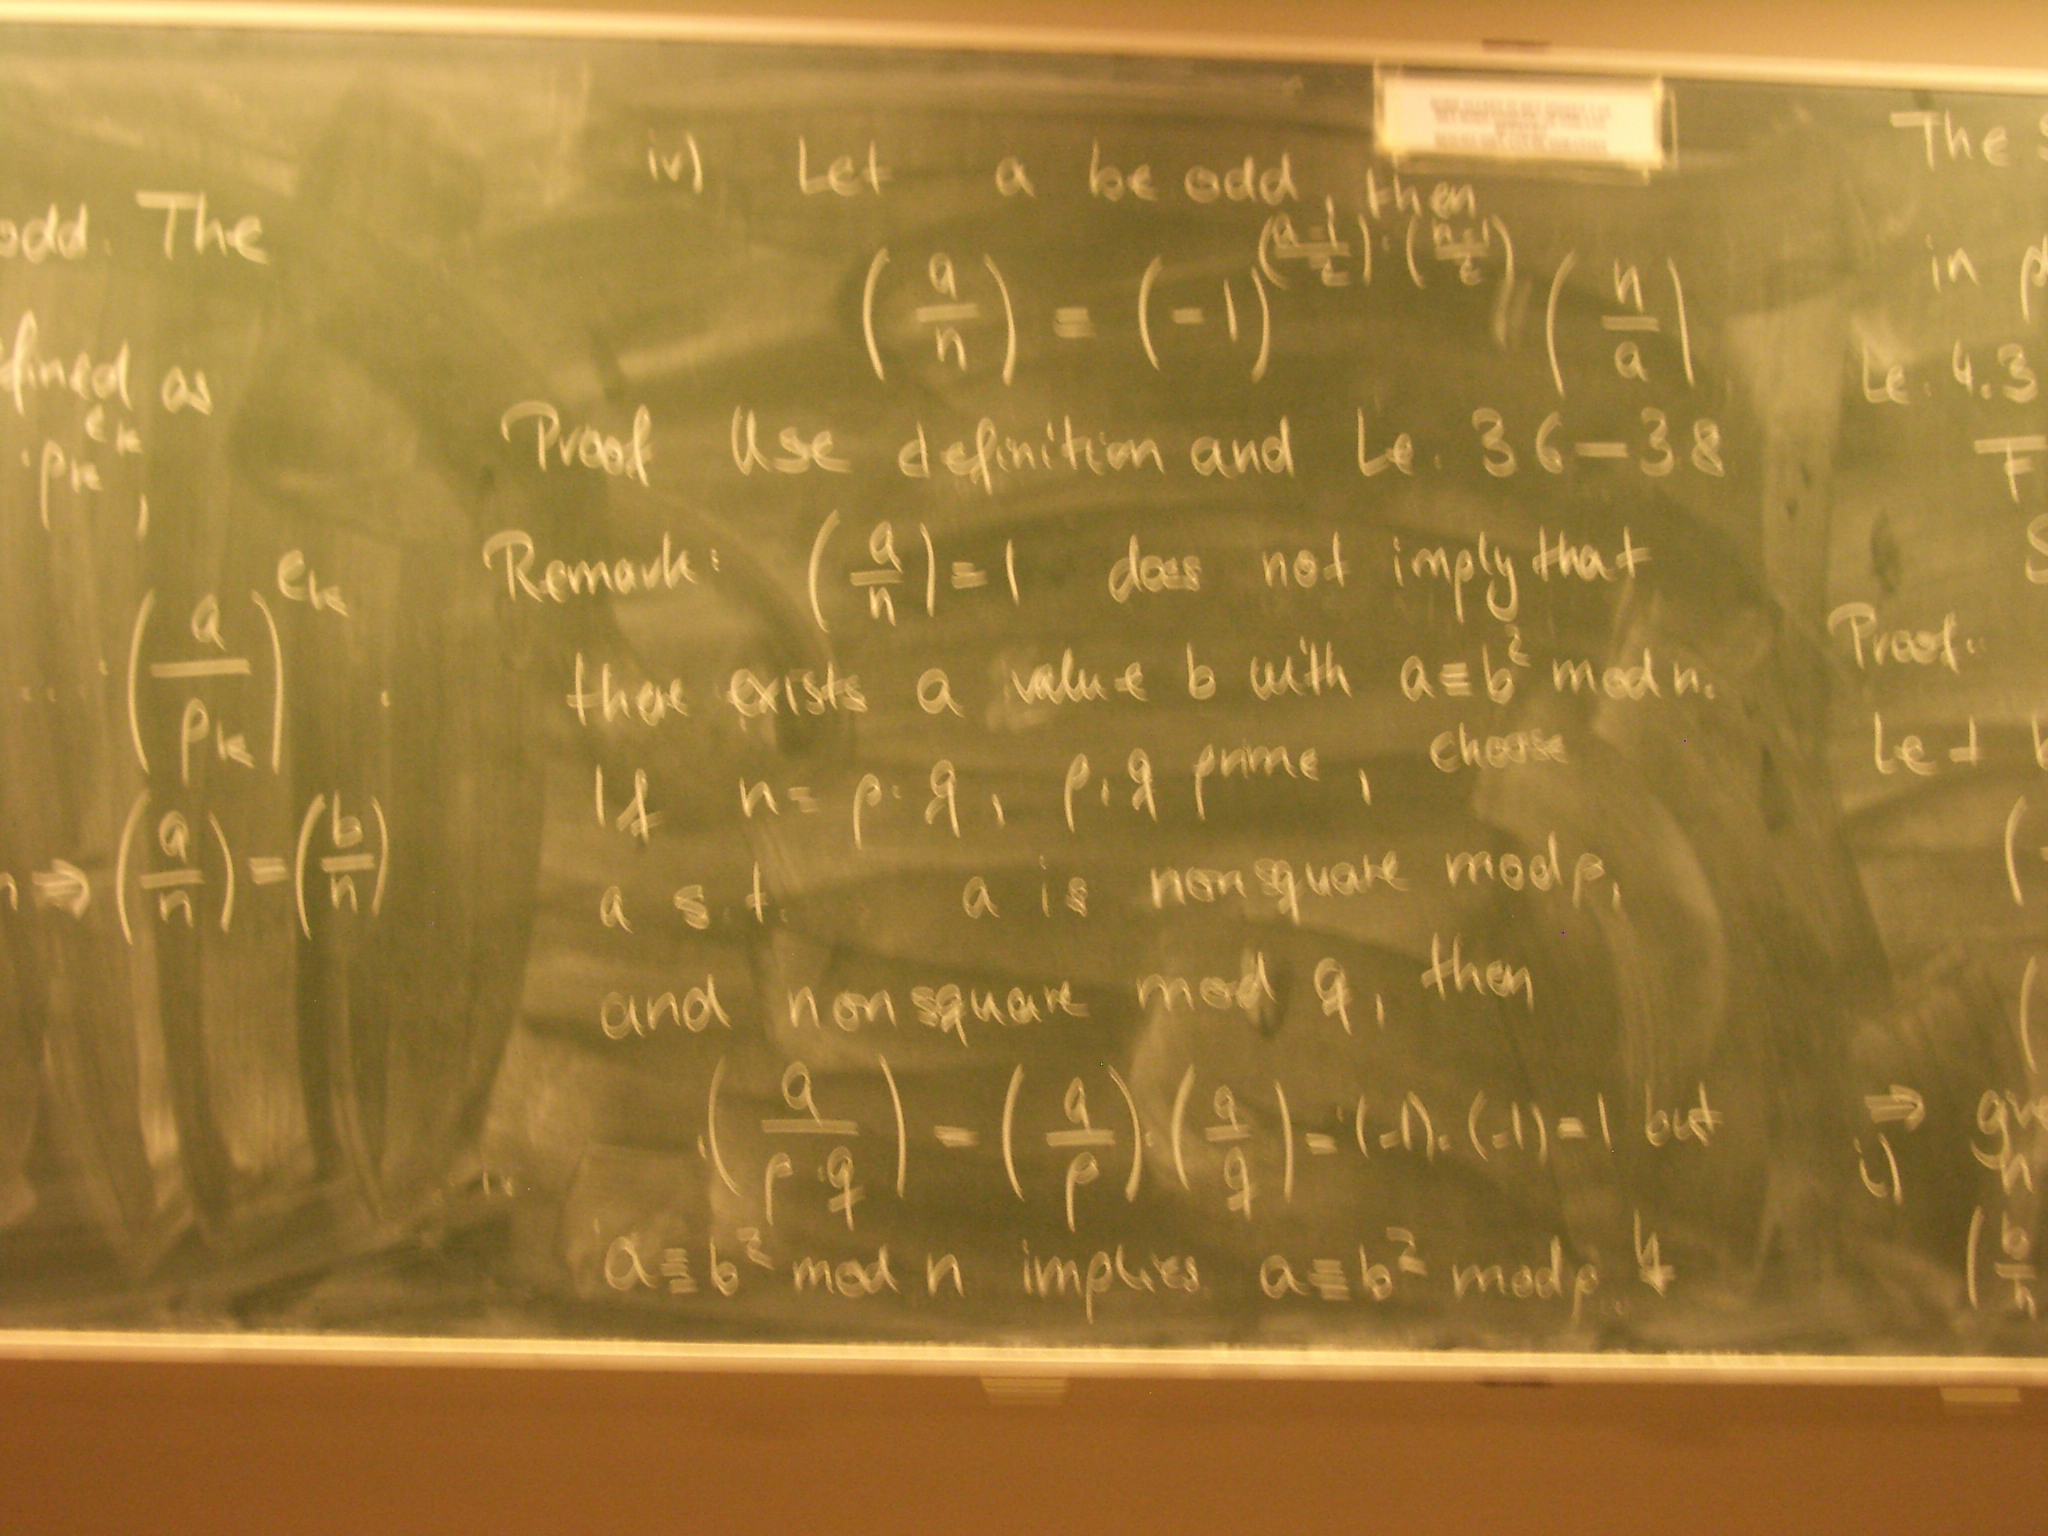 odd. The
fined as
· p_k^{e_k},
.... (a/p_k)^{e_k}.
n ⇒ (a/n) = (b/n)
iv) Let a be odd, then
(a/n) = (-1)^{((a-1)/2)·((n-1)/2)} (n/a)
Proof Use definition and Le. 3.6 – 3.8
Remark: (a/n) = 1 does not imply that
there exists a value b with a ≡ b² mod n.
If n = p·q, p,q prime, choose
a s.t. a is nonsquare mod p,
and nonsquare mod q, then
(a/(p·q)) = (a/p)·(a/q) = (-1)·(-1) = 1 but
a ≡ b² mod n implies a ≡ b² mod p ↯
The S
in p
Le. 4.3
F
S
Proof:
Let b
(
(
⇒ gve
i) n
(b/n